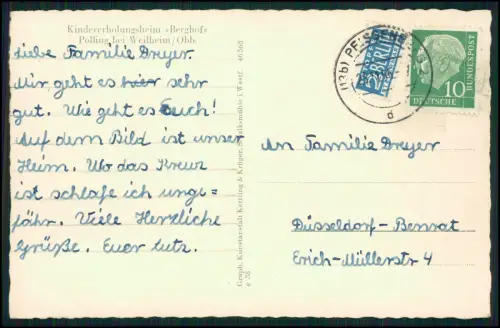 Kindererholungsheim »Berghof«
Polling bei Weilheim/Obb.
Liebe Familie Dreyer.
Mir geht es hier sehr
gut. Wie geht es Euch!
Auf dem Bild ist unser
Heim. Wo das Kreuz
ist schlafe ich unge=
fähr. Viele Herzliche
Grüße. Euer Lutz.
46363
e 38
(13b) PEISSENBERG
d
BERLIN
10
DEUTSCHE
BUNDESPOST
An Familie Dreyer
Düsseldorf-Benrat
Erich-Müllerstr 4